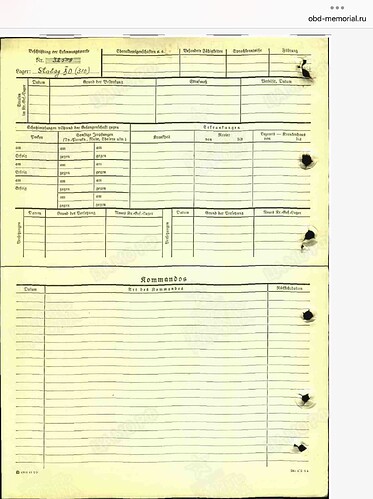 obd-memorial.ru
Beschriftung der Erkennungsmarke
Nr.
Lager: Stalag X D (310)
Charaktereigenschaften u. a.
Besondere Fähigkeiten
Sprachkenntnisse
Führung
Datum
Grund der Bestrafung
Strafmaß
Verbüßt, Datum
Schutzimpfungen während der Gefangenschaft gegen
Erkrankungen
Pocken
Sonstige Impfungen
(Ty.-Paraty., Ruhr, Cholera usw.)
Krankheit
Revier
von bis
Lazarett — Krankenhaus
von bis
am am am
Erfolg gegen gegen
am am am
Erfolg gegen gegen
am am am
Erfolg gegen gegen
am am am
gegen gegen
am am
gegen gegen
Versetzungen
Datum
Grund der Versetzung
Neues Kr.-Gef.-Lager
Versetzungen
Datum
Grund der Versetzung
Neues Kr.-Gef.-Lager
Kommandos
Datum
Art des Kommandos
Rückkehrdatum